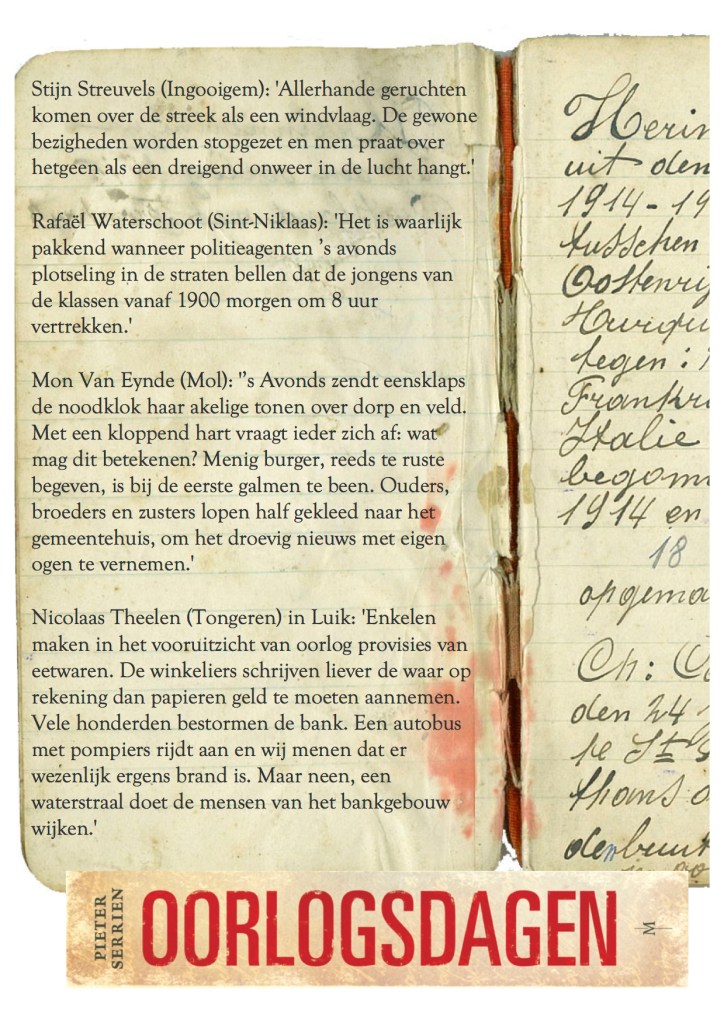 Stijn Streuvels (Ingooigem): 'Allerhande geruchten
komen over de streek als een windvlaag. De gewone
bezigheden worden stopgezet en men praat over
hetgeen als een dreigend onweer in de lucht hangt.'
Rafaël Waterschoot (Sint-Niklaas): 'Het is waarlijk
pakkend wanneer politieagenten 's avonds
plotseling in de straten bellen dat de jongens van
de klassen vanaf 1900 morgen om 8 uur
vertrekken.'
Mon Van Eynde (Mol): ''s Avonds zendt eensklaps
de noodklok haar akelige tonen over dorp en veld.
Met een kloppend hart vraagt ieder zich af: wat
mag dit betekenen? Menig burger, reeds te ruste
begeven, is bij de eerste galmen te been. Ouders,
broeders en zusters lopen half gekleed naar het
gemeentehuis, om het droevig nieuws met eigen
ogen te vernemen.'
Nicolaas Theelen (Tongeren) in Luik: 'Enkelen
maken in het vooruitzicht van oorlog provisies van
eetwaren. De winkeliers schrijven liever de waar op
rekening dan papieren geld te moeten aannemen.
Vele honderden bestormen de bank. Een autobus
met pompiers rijdt aan en wij menen dat er
wezenlijk ergens brand is. Maar neen, een
waterstraal doet de mensen van het bankgebouw
wijken.'
Herin
uit den
1914-19
tusschen
Oostenrij
tegen:
Frankr
Italie
begon
1914 en
18
opgema
Ch:
den 24
te St
thans
PIETER
SERRIEN
OORLOGSDAGEN
M